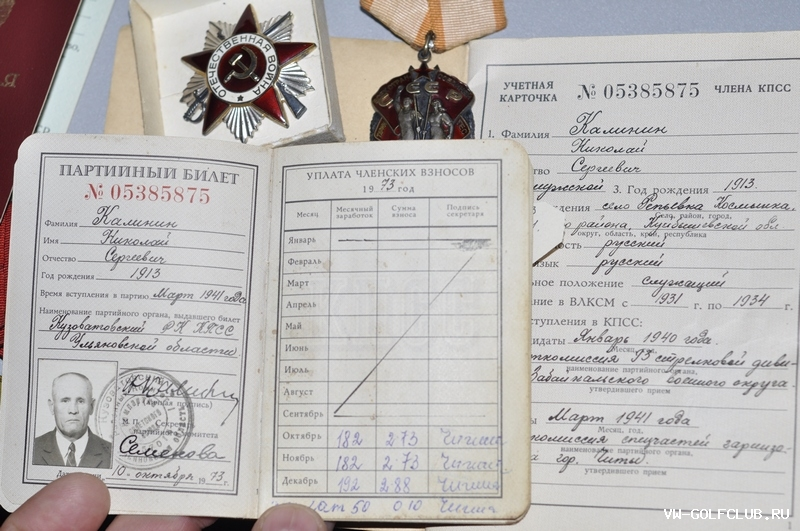 ОТЕЧЕСТВЕННАЯ ВОЙНА
ПАРТИЙНЫЙ БИЛЕТ
№ 05385875
Фамилия Калинин
Имя Николай
Отчество Сергеевич
Год рождения 1913
Время вступления в партию Март 1941 года
Наименование партийного органа, выдавшего билет
Кузоватовский РК КПСС
Ульяновской области.
(личная подпись)
М. П. Секретарь
партийного комитета
Семенова
10 октября 1973 г.
УПЛАТА ЧЛЕНСКИХ ВЗНОСОВ
1973 год
Месяц Месячный заработок Сумма взноса Подпись секретаря
Январь
Февраль
Март
Апрель
Май
Июнь
Июль
Август
Сентябрь
Октябрь 182 2-73
Ноябрь 182 2-73
Декабрь 192 2 88
50 0 10
УЧЕТНАЯ КАРТОЧКА № 05385875 ЧЛЕНА КПСС
1. Фамилия Калинин
Николай
ство Сергеевич
мужской 3. Год рождения 1913.
дения село Репьевка Космынка,
Село, район, город,
района, Куйбышевской обл
округ, область, край, республика
ность русский
язык русский
ьное положение служащий
ание в ВЛКСМ с 1931 г. по 1934 г.
ступления в КПСС:
идаты Январь 1940 года.
Месяц, год.
ткомиссия 93 стрелковой диви-
наименование партийного органа,
Забайкальского военного округа.
утвердившего прием
ы Март 1941 года
Месяц, год.
комиссия спецчастей гарнизо-
наименование партийного органа,
гор. Читы.
утвердившего прием
VW-GOLFCLUB.RU